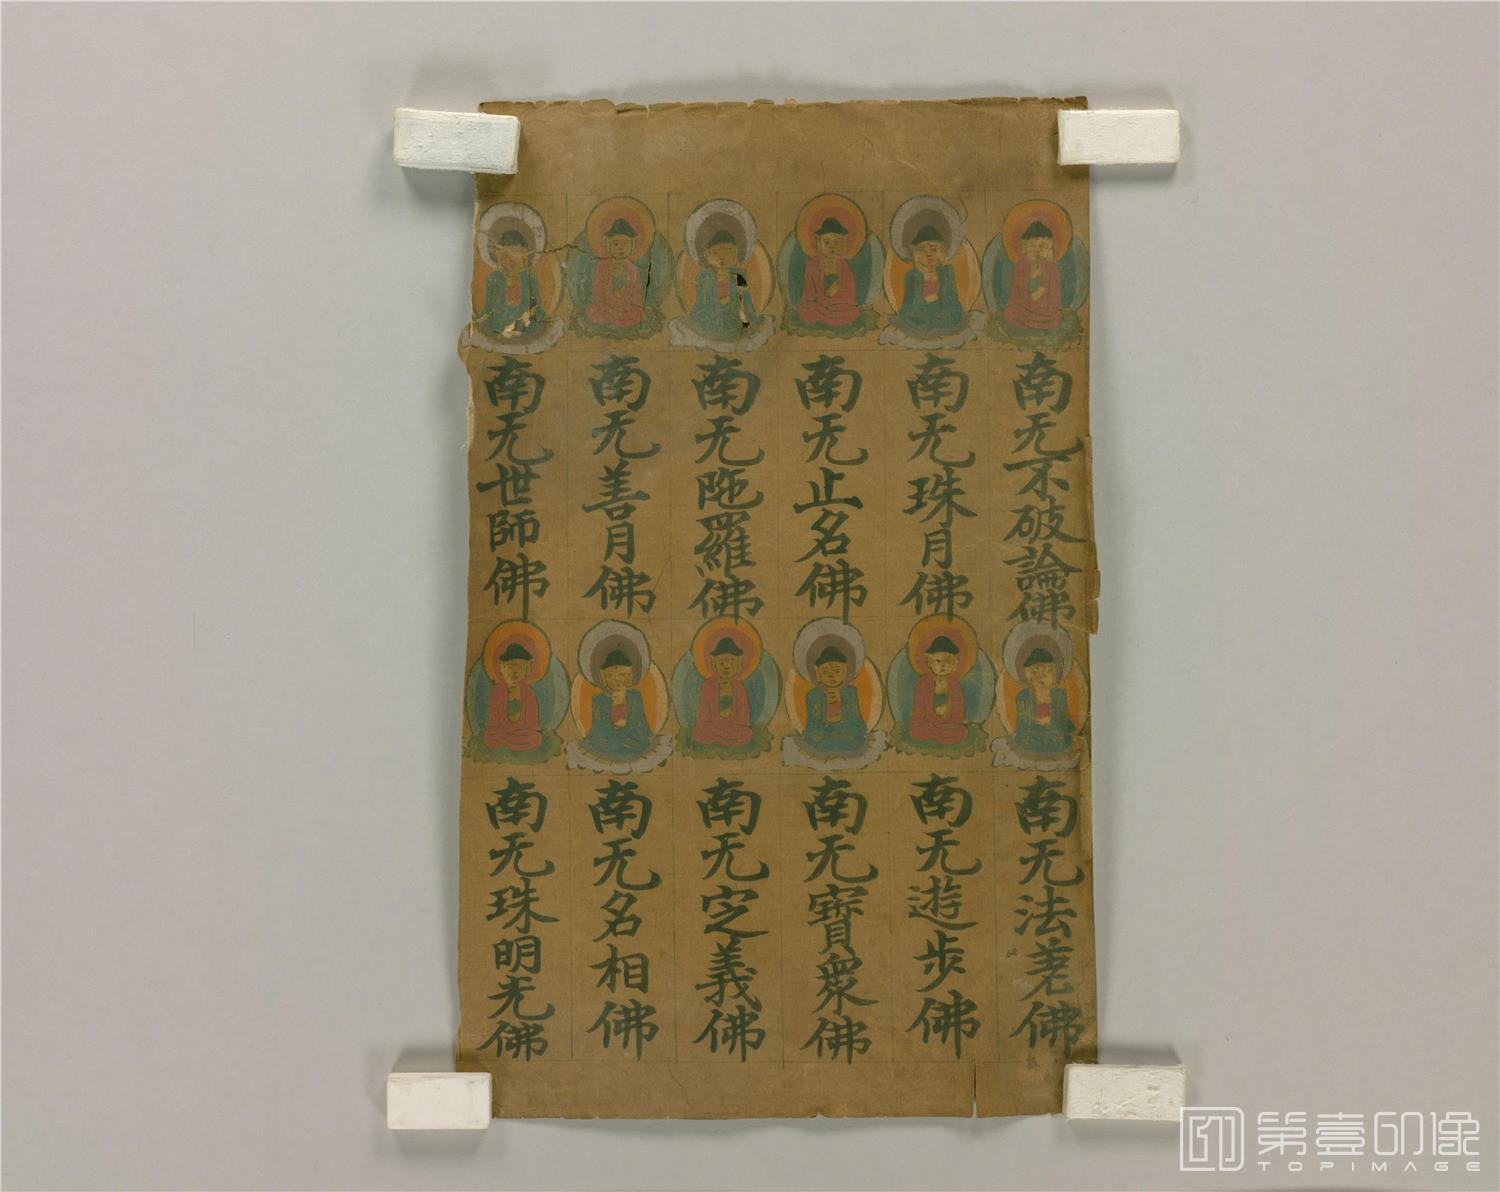 南无不破論佛
南无珠月佛
南无止名佛
南无陁羅佛
南无善月佛
南无世師佛
南无法差佛
南无遊步佛
南无寶衆佛
南无定義佛
南无名相佛
南无珠明光佛
第壹印像
TOPIMAGE